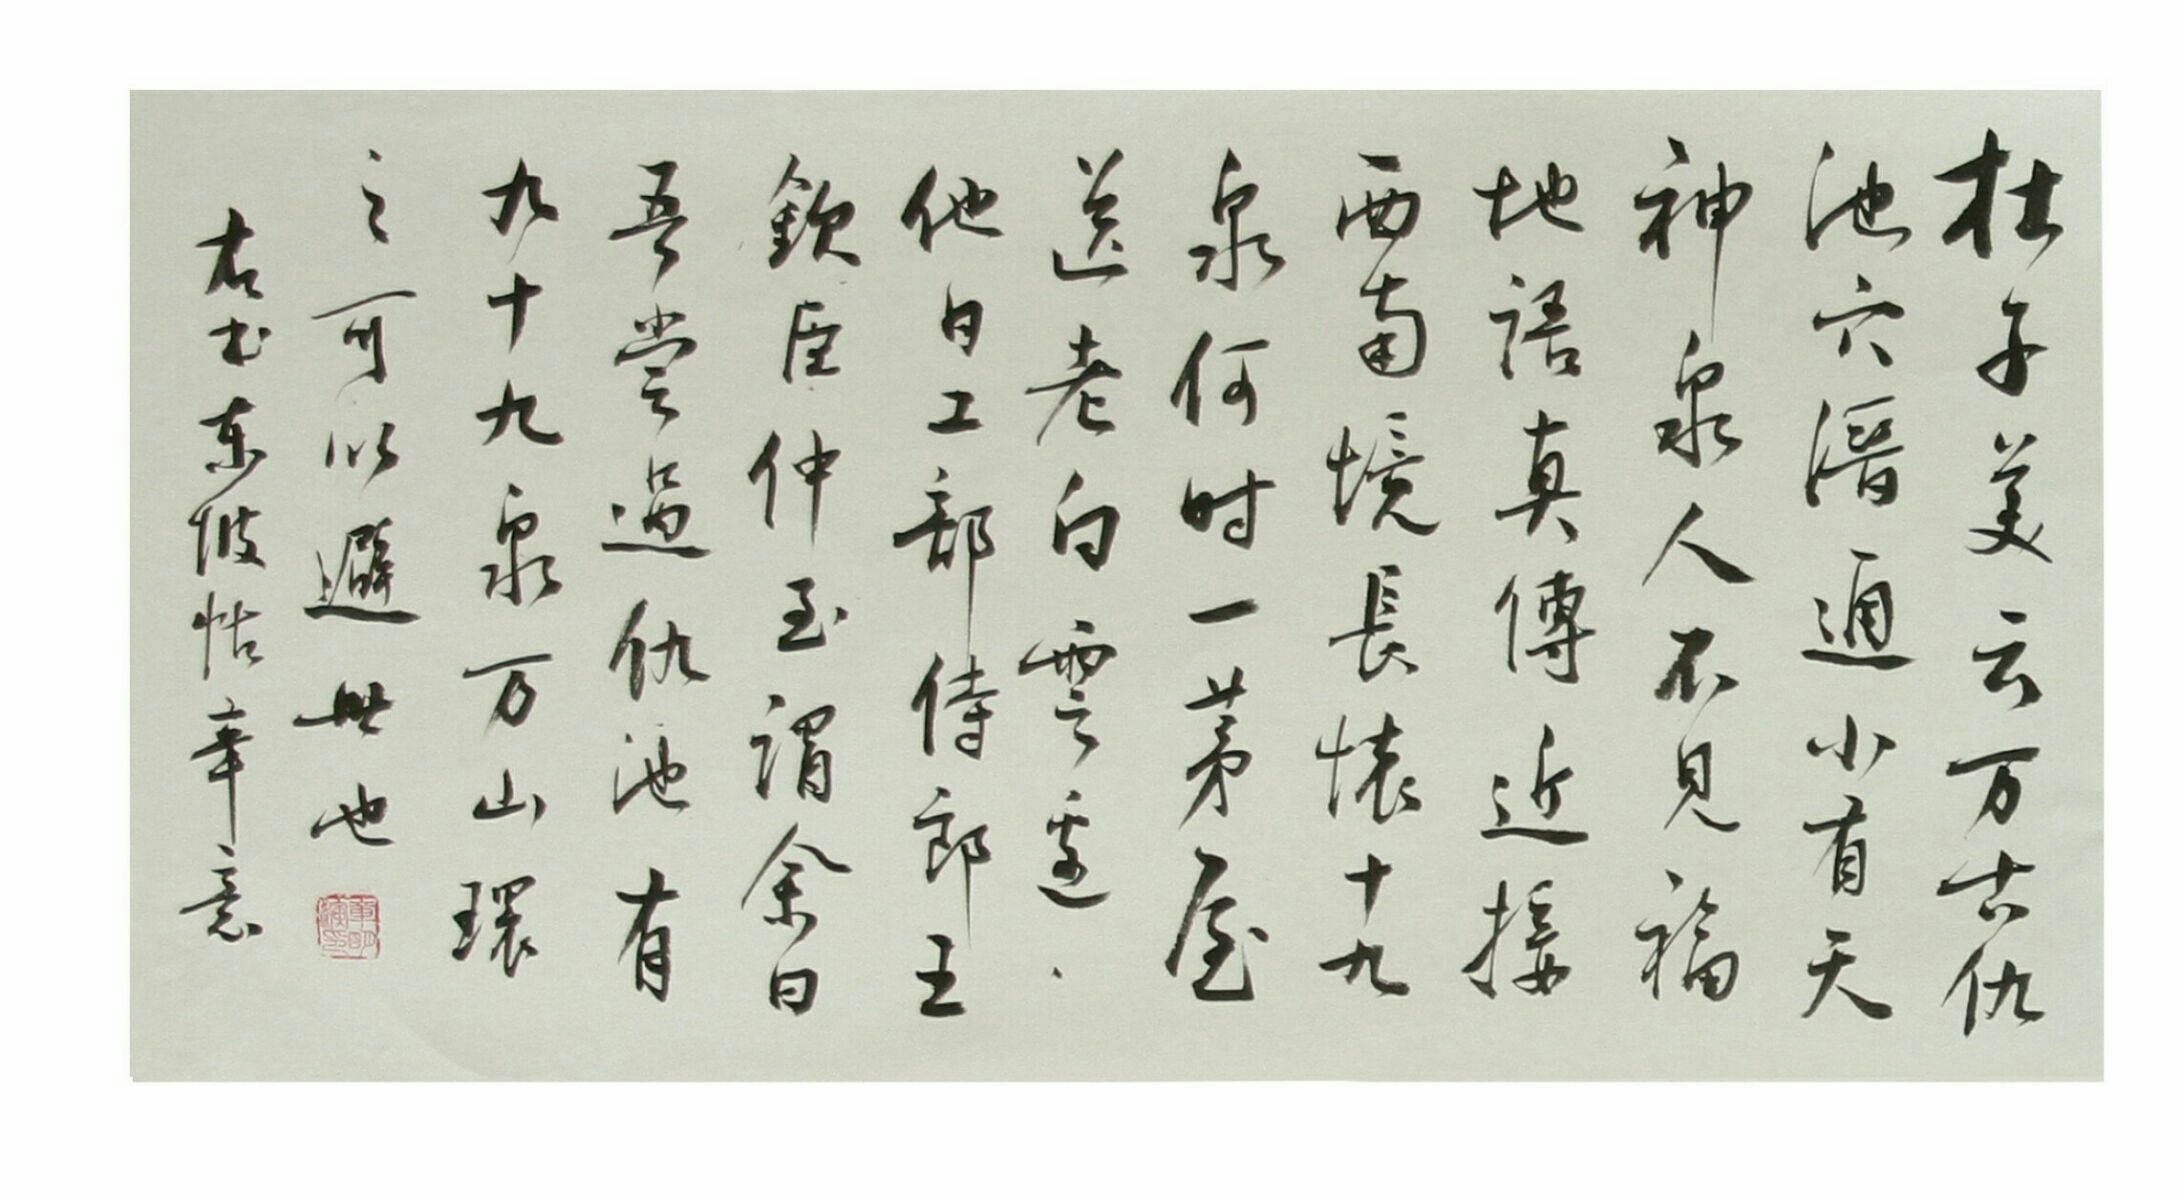 杜子美云万古仇
池穴潛通小有天
神泉人不見福
地語真傳近接
西南境長懷十九
泉何时一茅屋
送老白雲邊
他日工部侍郎王
欽臣仲至謂余曰
吾尝過仇池有
九十九泉万山環
之可以避世也
右书东坡帖章意